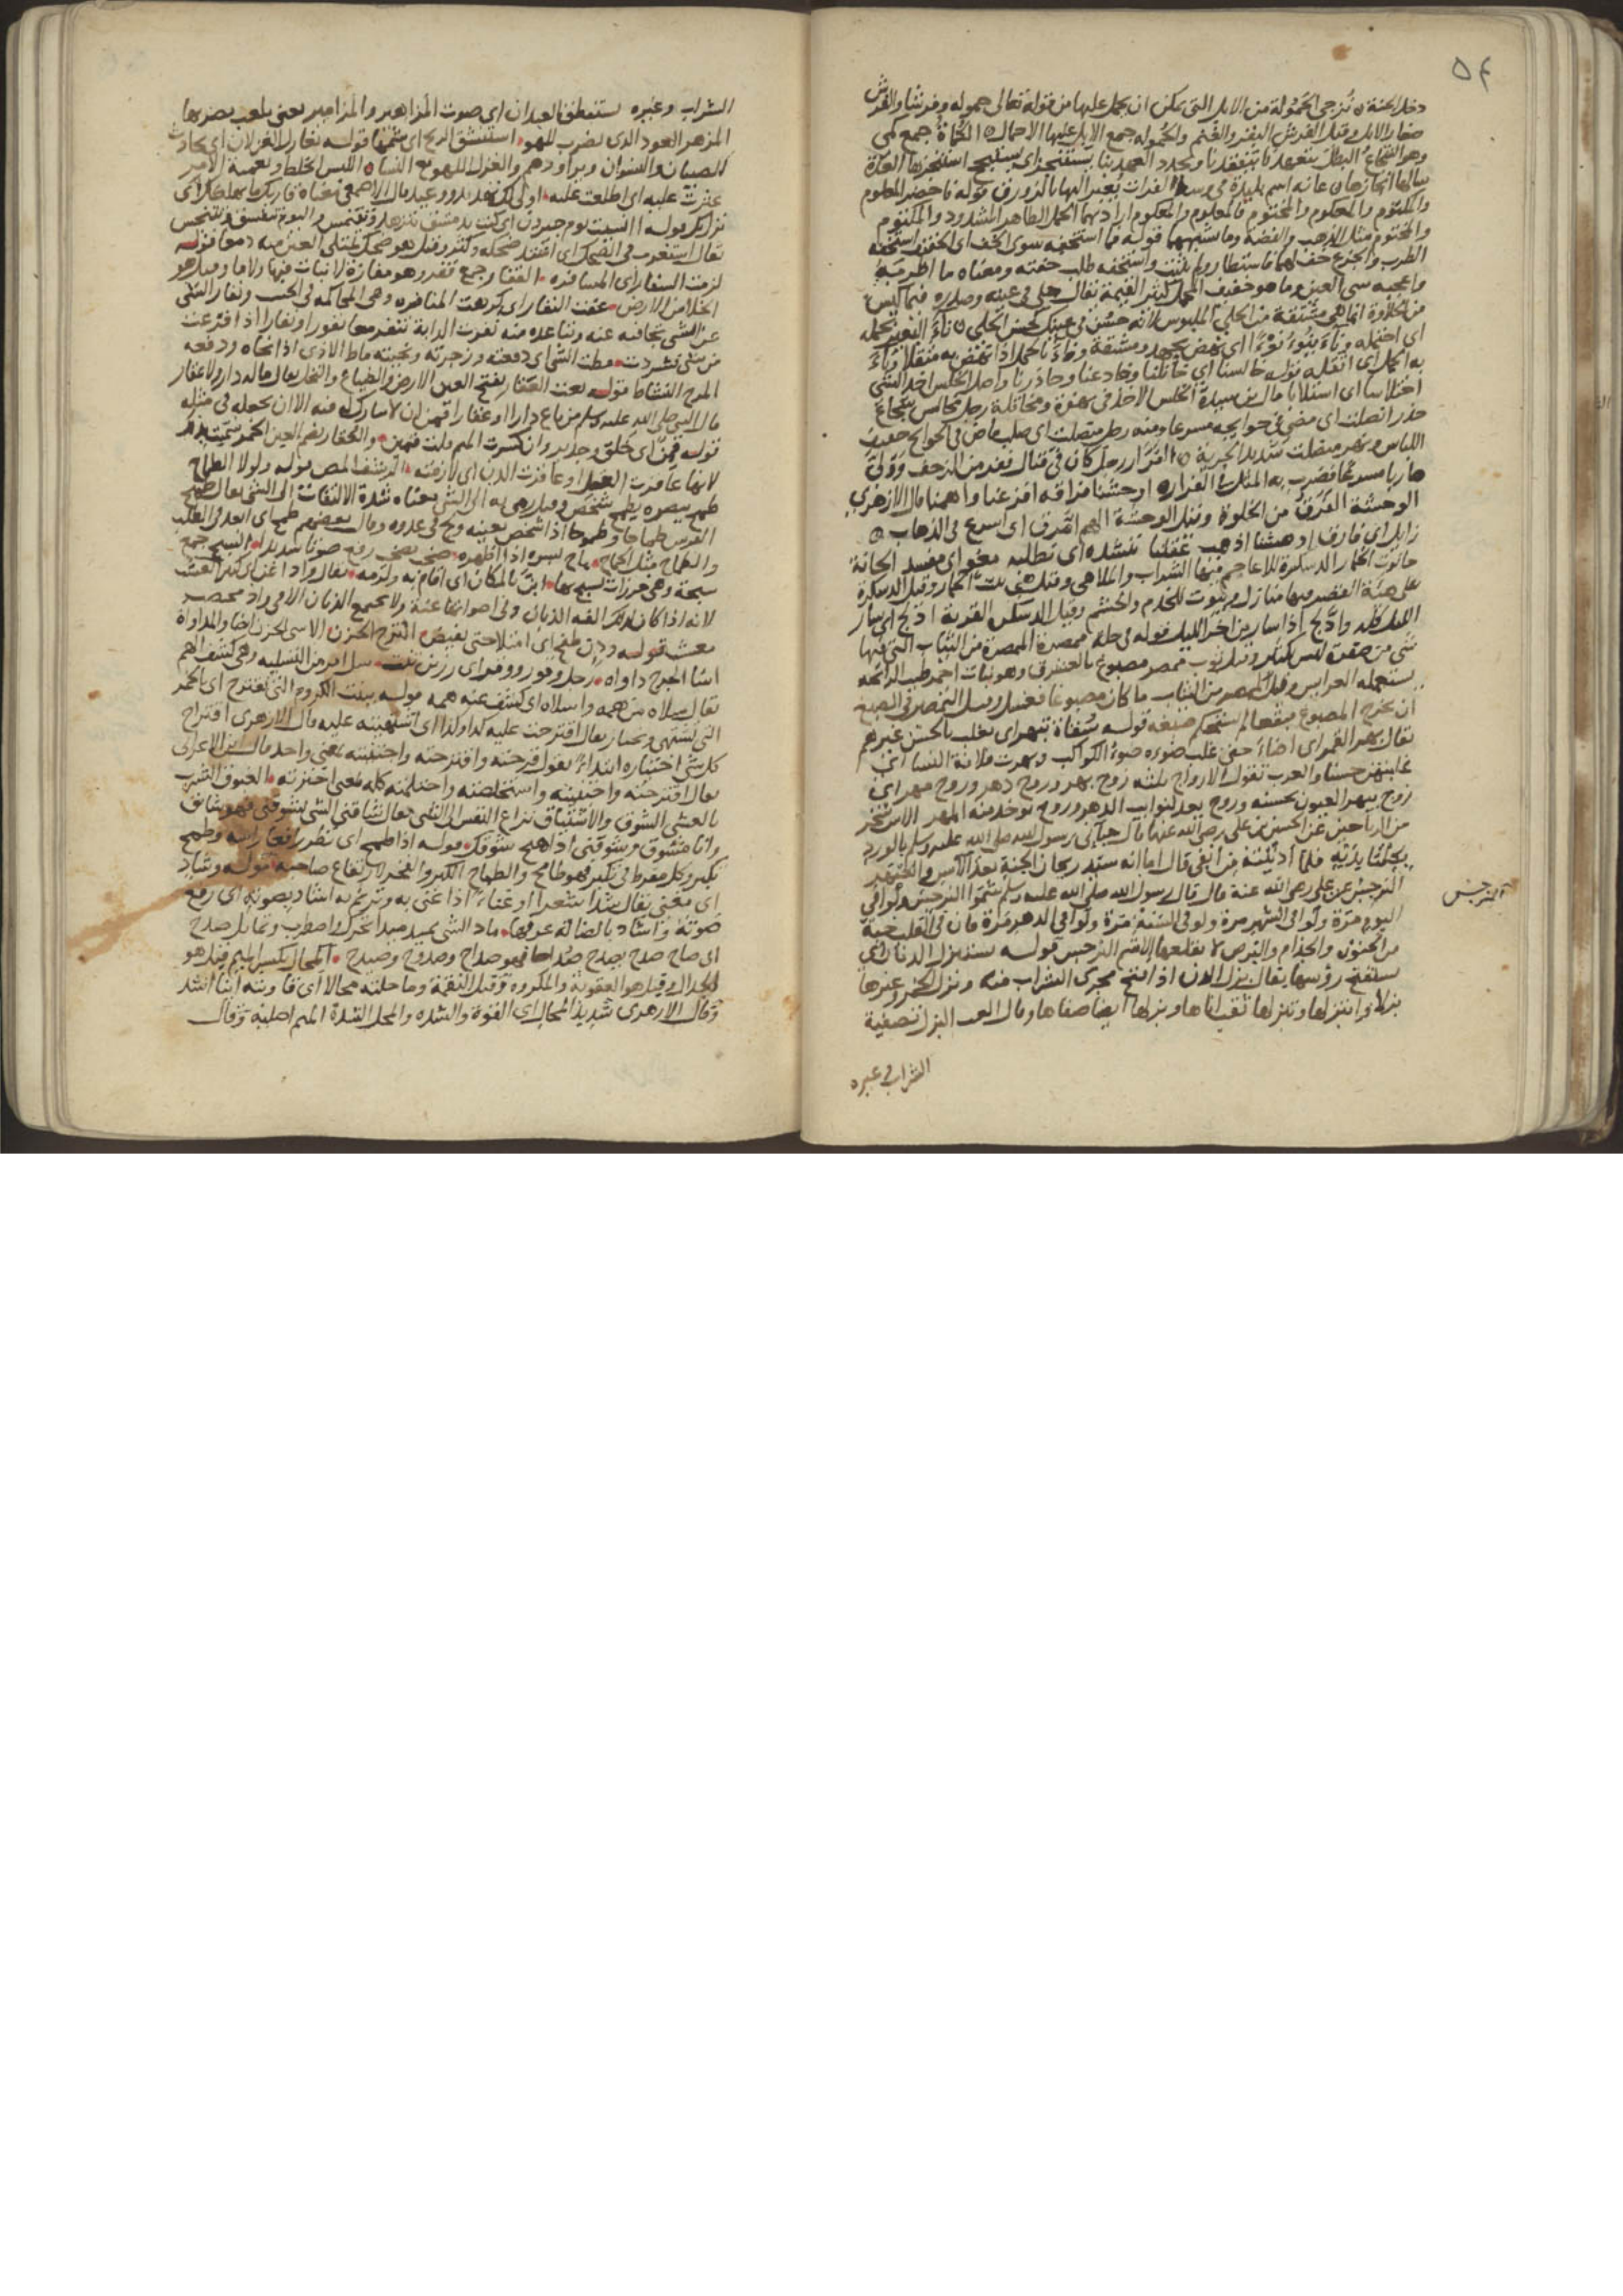 ٥٤
دخل الجنة ه نُزجي الحَمُولة من الابل التي يمكن ان يحمل عليها من قوله تعالى حمولة وفرشا والفرش
صغار الابل وقيل الفرش البقر والغنم والحمولة جمع الابل عليها الاحمال ه الكماة جمع كمي
وهو الشجاع البطل يتعهدنا يتفقدنا ويجدد العهد بنا يستنجز اي يستنجح استنجزها العدة
سالها انجازها ه عانه اسم بليدة في وسط الفرات يعبر اليها بالزورق قوله فاحضر المعلوم
والمكتوم والمعكوم والمختوم فالمعلوم والمعكوم اراد بهما الحمل الظاهر المشدود والمكتوم
والمختوم مثل الذهب والفضة وما شبههما قوله فما استخفه سوى الخف اي الخفيف استخفه
الطرب والجزع خف لهما فاستطار ولم يثبت واستخفه طلب خفته ومعناه ما اطربه
واعجبه سي العين وما هو خفيف المحمل كثير القيمة يقال حلي في عينه وصدره فيما ليس
من الحلاوة انما هي مشتقة من الحلي الملبوس لانه حسن في عينك كحسن الحلي ه ناء البعير بحمله
اي احتمله وناء ينوء نوءا اي نهض بجهد ومشقة وناء بالحمل اذا نهض به مثقلا وناء
به الحمل اي اثقله قوله خالسنا اي خاتلنا وخادعنا وحاذرنا واصل الخلس اخذ الشي
اختلاسا اي استلابا قال ابن سيدة الخلس الاخذ في نهزة ومخاتلة رجل مخالس شجاع
حذر انصلت اي مضى في حوايجه مسرعا ومنه رجل منصلت اي صلب ماض في الحوايج خفيف
اللباس ونهر منصلت شديد الجرية ه الفَرّار رجل كان في قتال فعد من الزحف وولى
هاربا مسرعا فضرب به المثل في الفرار ه اوحشنا فراقه افزعنا واهمنا قال الازهري
الوحشة الفَرَق من الخلوة وقيل الوحشة الهم امرق اي اسرع في الذهاب ه
زايل اي فارق ادهشنا اذهب عقلنا ننشده اي نطلبه مغو اي مفسد الحانة
حانوت الخمار الدسكرة للاعاجم فيها الشراب والملاهي وقيل هي بيت الخمار وقيل الدسكرة
على هيئة القصر فيها منازل وبيوت للخدم والحشم وقيل الدسكرة القرية ادلج اي سار
الليل كله وادّلج اذا سار من آخر الليل قوله في حلة ممصرة الممصرة من الثياب التي فيها
شي من صفرة ليس بكثير وقيل ثوب ممصر مصبوغ بالعشرق وهو نبات احمر طيب الرائحة
يستعمله العرايس وقيل الممصر من الثياب ما كان مصبوغا فغسل وقيل التمصر في الصبغ
ان يخرج المصبوغ مبقعا لم يستحكم صبغه قوله سُقاة تبهر اي تغلب بالحسن غيرهم
يقال بهر القمر اي اضاء حتى غلب ضوءه ضوء الكواكب وبهرت فلانة النسا اي
غلبتهن حسنا والعرب تقول الازواج ثلثة زوج بهر وزوج دهر وزوج مهر اي
زوج يبهر العيون بحسنه وزوج يعد لنوايب الدهر وزوج يوخذ منه المهر الاس شجر
من الرياحين عن الحسين بن علي رضي الله عنهما قال حباني رسول الله صلى الله عليه وسلم بالورد
بكلتا يديه فلما ادنيته من انفي قال اما انه سيد ريحان الجنة بعد الآس والعبهر
النرجس عن علي رضي الله عنه قال قال رسول الله صلى الله عليه وسلم شموا النرجس ولو في
اليوم مرة ولو في الشهر مرة ولو في السنة مرة ولو في الدهر مرة فان في القلب حبة
من الجنون والجذام والبرص لا يقلعها الا شم النرجس قوله ستبزل الدنان اي
ستفتح رؤسها يقال بزل الدن اذا افتح مجرى الشراب منه وبزل الخمر وغيرها
بزلا وابتزلها وتبزلها ثقب اناها وبزلها ايضا صفاها وقال الليث البزل تصفية
النرجس
الشراب وغيره
الشراب وغيره يستنطق العيدان اي صوت المزاهر والمزامير يعني يلعب بضربها
المزهر العود الذي يضرب للهو استنشق الريح اي شمها قوله يغازل الغزلان اي يحادث
الصبيان والنسوان ويراودهم والغزل اللهو مع النساء ه اللبس الخلط وتعمية الامر
عثرت عليه اي اطلعت عليه اولى لك تهدد ووعيد قال الاصمعي معناه قاربك ما يهلكك اي
نزل بك قوله اانسيت يوم جيرون اي كنت بدمشق تتزهد وتتنمس واليوم تتفسق وتتنجس
يقال استغرب في الضحك اي اشتد ضحكه وكثر وقيل هو ضحك يمتلي العين منه دمعا قوله
لزمت السفار اي المسافره القفار جمع قفر وهو مفازة لا نبات فيها ولا ما وقيل هو
الخلا من الارض عفت النفار اي كرهت المنافره وهي المحاكمة في الحسب ونفار الشي
عن الشي تجافيه عنه وتباعده منه نفرت الدابة تنفر معا نفورا ونفارا اذا فزعت
من شي شردت مطت الشي اي دفعته وزجرته ونحيته ماط الاذى اذا نحاه ودفعه
المرح النشاط قوله بعت العقار بفتح العين الارض والضياع والنخل يقال ماله دار ولا عقار
قال النبي صلى الله عليه وسلم من باع دارا او عقارا قمن ان لا يبارك له فيه الا ان يجعله في مثله
قوله قمن اي خلق وجدير وان كسرت الميم قلت قمين والعُقار بضم العين الخمر سميت بذلك
لانها عاقرت العقل او عاقرت الدن اي لازمته الرشف المص قوله ولولا الطماح
طمح ببصره يطمح شخص وقيل رمى به الى الشي معناه شدة الالتفات الى الشي يقال طمح
الفرس طماحا وطموحا اذا شخص بعينه ولج في عدوه وقال بعضهم طمح اي ابعد في الطلب
والطماح مثل الجماح باح بسره اذا اظهره صخب يصخب رفع صوتا شديدا السبح جمع
سبحة وهي خرزات يسبح بها ابنّ بالمكان اي اقام به ولزمه يقال واد اغن اي كثير العشب
لانه اذا كان كذلك الفه الذبان وفي اصواتها غنة ولا يجتمع الذبان الا في واد مخصب
معشب قوله ودن طفح اي امتلا حتى يفيض الترح الحزن الاسى الحزن ايضا والمداواة
اسا الجرح داواه رجل وقور ووقر اي رزين ثبت سل امر من التسلية وهي كشف الهم
يقال سلاه من همه واسلاه اي كشف عنه همه قوله ببنت الكروم التي تقترح اي بالخمر
التي تشتهى وتختار يقال اقترحت عليه كذا وكذا اي اشتهيته عليه قال الازهري اقتراح
كل شي اختياره ابتداء يقول قرحته واقترحته واجتبيته بمعني واحد قال ابن الاعرابي
يقال اقترحته واجتبيته واستخلصته واختلمته كله بمعنى اخترته الغبوق الشرب
بالعشي الشوق والاشتياق نزاع النفس الى الشي يقال شاقني الشي يشوقني فهو شائق
وانا مشوق وشوقني اذا هيج شوقك قوله اذا طمح اي نظر رافعا راسه وطمح
تكبر وكل مفرط في تكبر فهو طامح والطماح الكبر والفخر لارتفاع صاحبه قوله وشاد
اي مغنٍّ يقال شدا شعرا او غناء اذا غنى به وترنم به اشاد بصوته اي رفع
صوته واشاد بالضالة عرفها ماد الشي يميد ميدا تحرك واضطرب وتمايل صدح
اي صاح صدح يصدح صُداحا فهو صداح وصدوح وصيدح المحال بكسر الميم قيل هو
الجدال وقيل هو العقوبة والمكروه وقيل النقمة وماحلته محالا اي قاويته اينا اشد
وقال الازهري شديد المحال اي القوة والشده والمحل الشدة الميم اصلية وقال